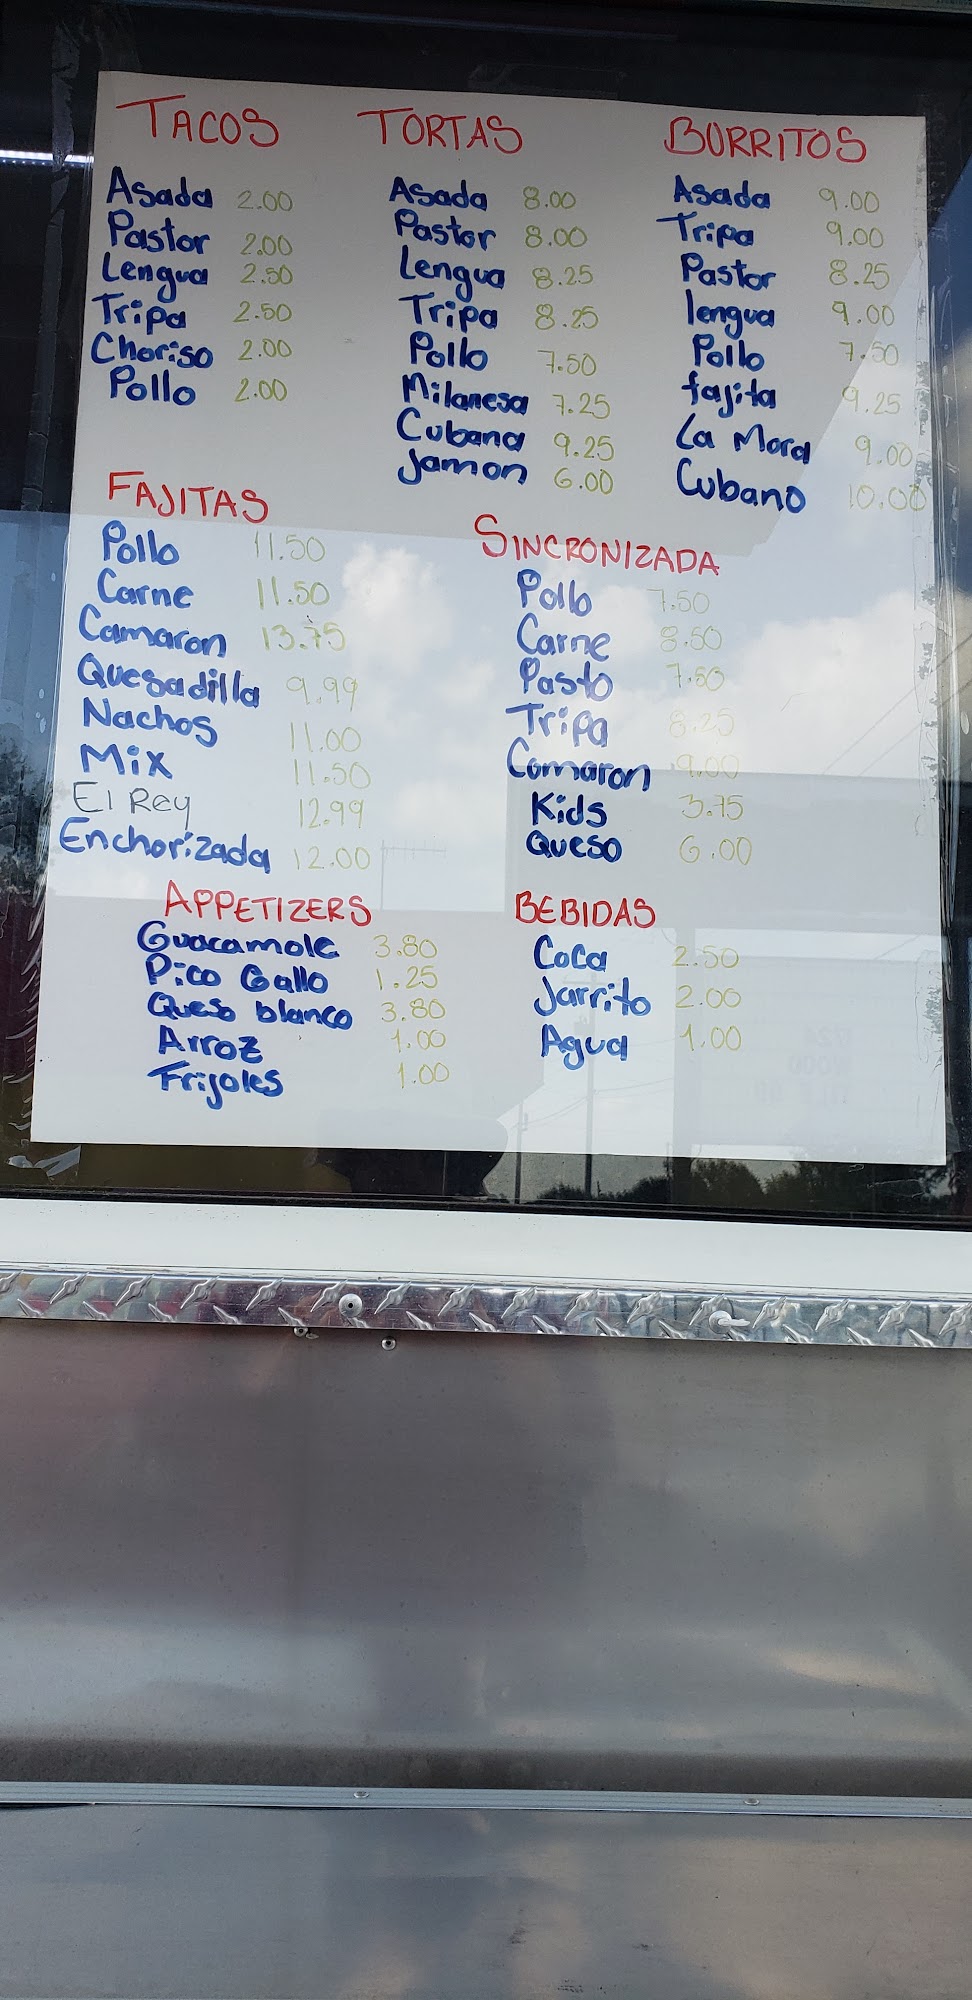 TACOS
Asada 2.00
Pastor 2.00
Lengua 2.50
Tripa 2.50
Choriso 2.00
Pollo 2.00
TORTAS
Asada 8.00
Pastor 8.00
Lengua 8.25
Tripa 8.25
Pollo 7.50
Milanesa 7.25
Cubana 9.25
Jamon 6.00
BURRITOS
Asada 9.00
Tripa 9.00
Pastor 8.25
lengua 9.00
Pollo 7.50
fajita 9.25
La Mora 9.00
Cubano 10.00
FAJITAS
Pollo 11.50
Carne 11.50
Camaron 13.75
Quesadilla 9.99
Nachos 11.00
Mix 11.50
El Rey 12.99
Enchorizada 12.00
SINCRONIZADA
Pollo 7.50
Carne 8.50
Pasto 7.50
Tripa 8.25
Comaron 9.00
Kids 3.75
Queso 6.00
APPETIZERS
Guacamole 3.80
Pico Gallo 1.25
Queso blanco 3.80
Arroz 1.00
Frijoles 1.00
BEBIDAS
Coca 2.50
Jarrito 2.00
Agua 1.00